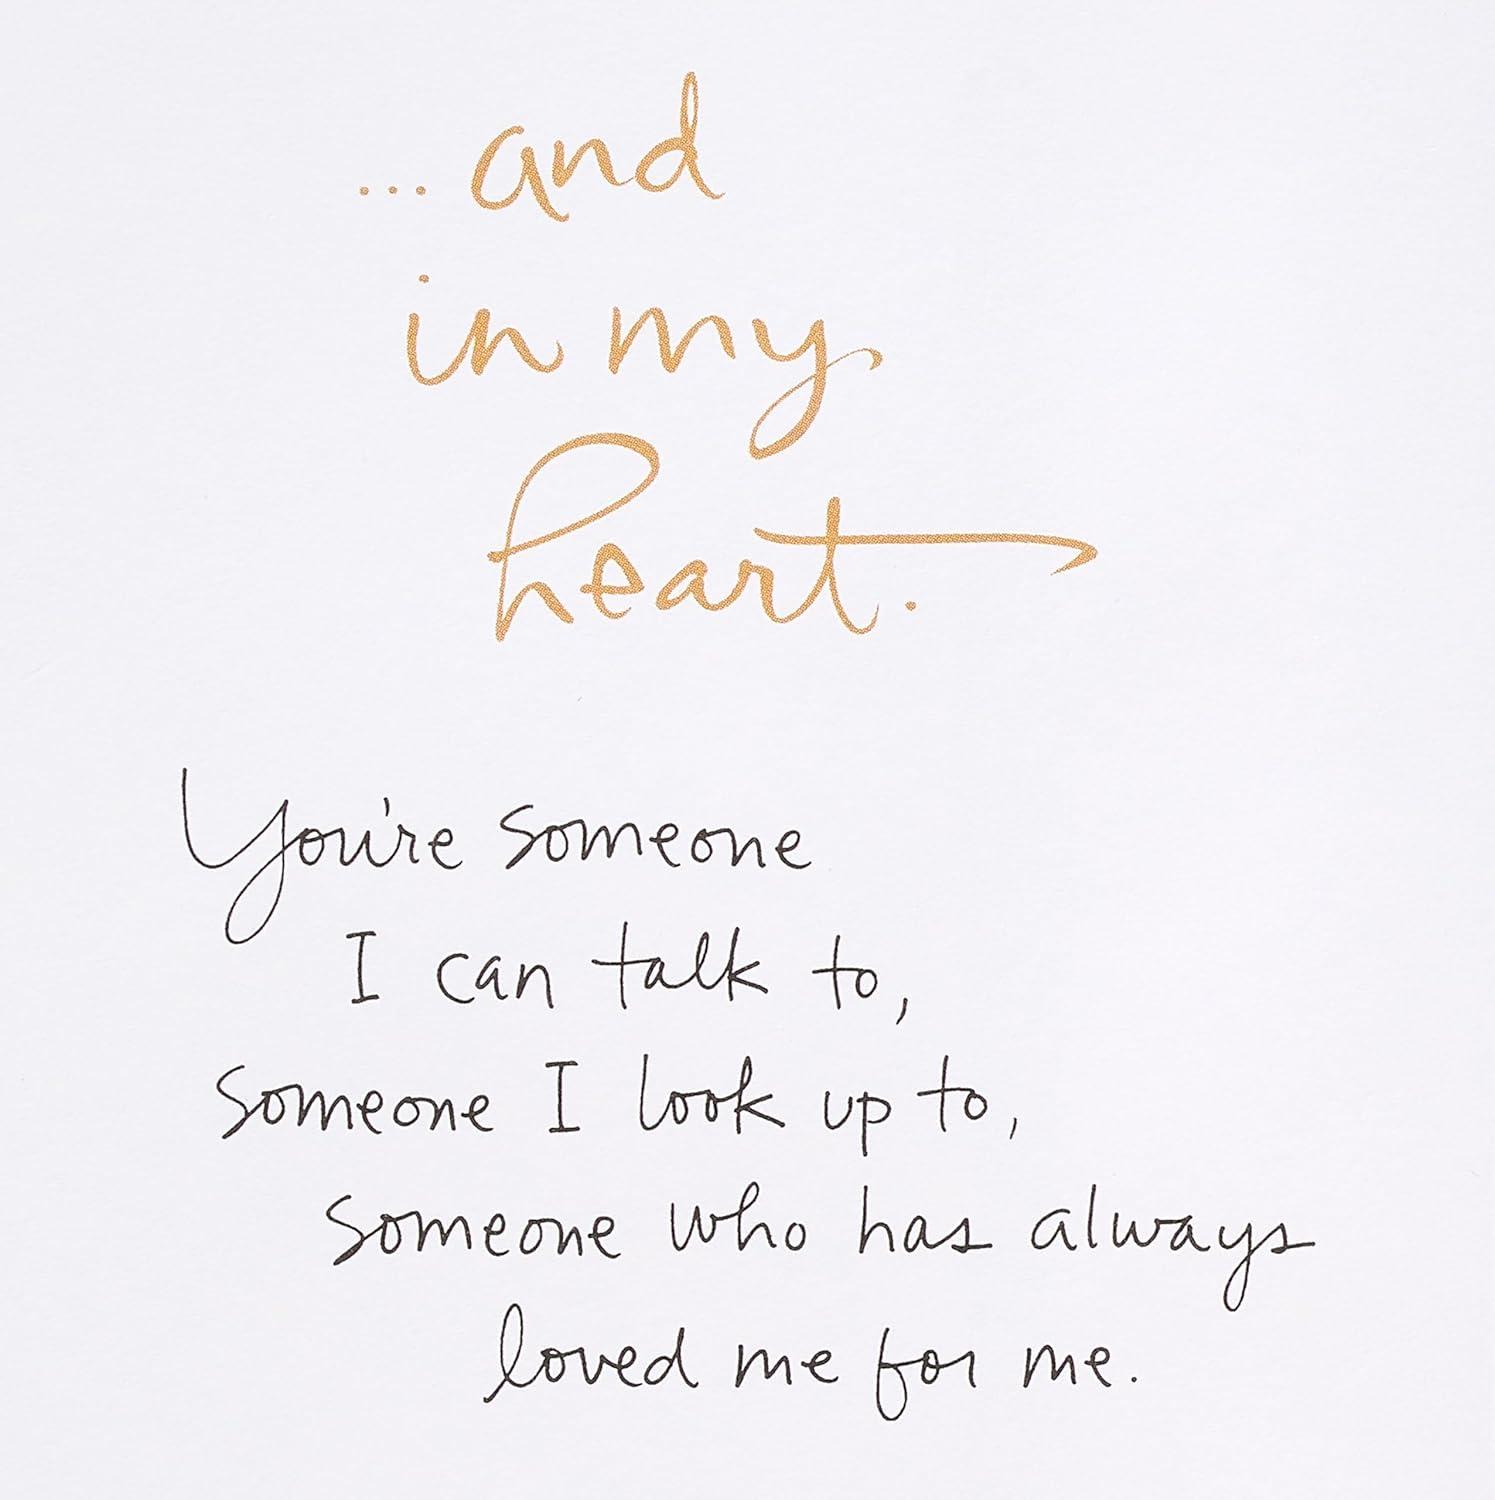 ... and
in my
heart.
You're someone
I can talk to,
someone I look up to,
someone who has always
loved me for me.